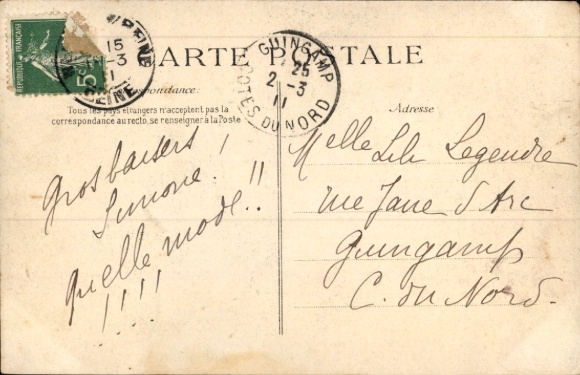 CARTE POSTALE
REPUBLIQUE FRANÇAISE
5c
15
-3
SEINE
GUINGAMP
25
2 -3
11
COTES DU NORD
Correspondance:
Tous les pays étrangers n'acceptent pas la
correspondance au recto, se renseigner à la Poste
Gros baisers !
Simone !
Quelle mode !!
!!!!
Adresse
Melle Lili Legendre
rue Jane d'Arc
Guingamp
C. du Nord.